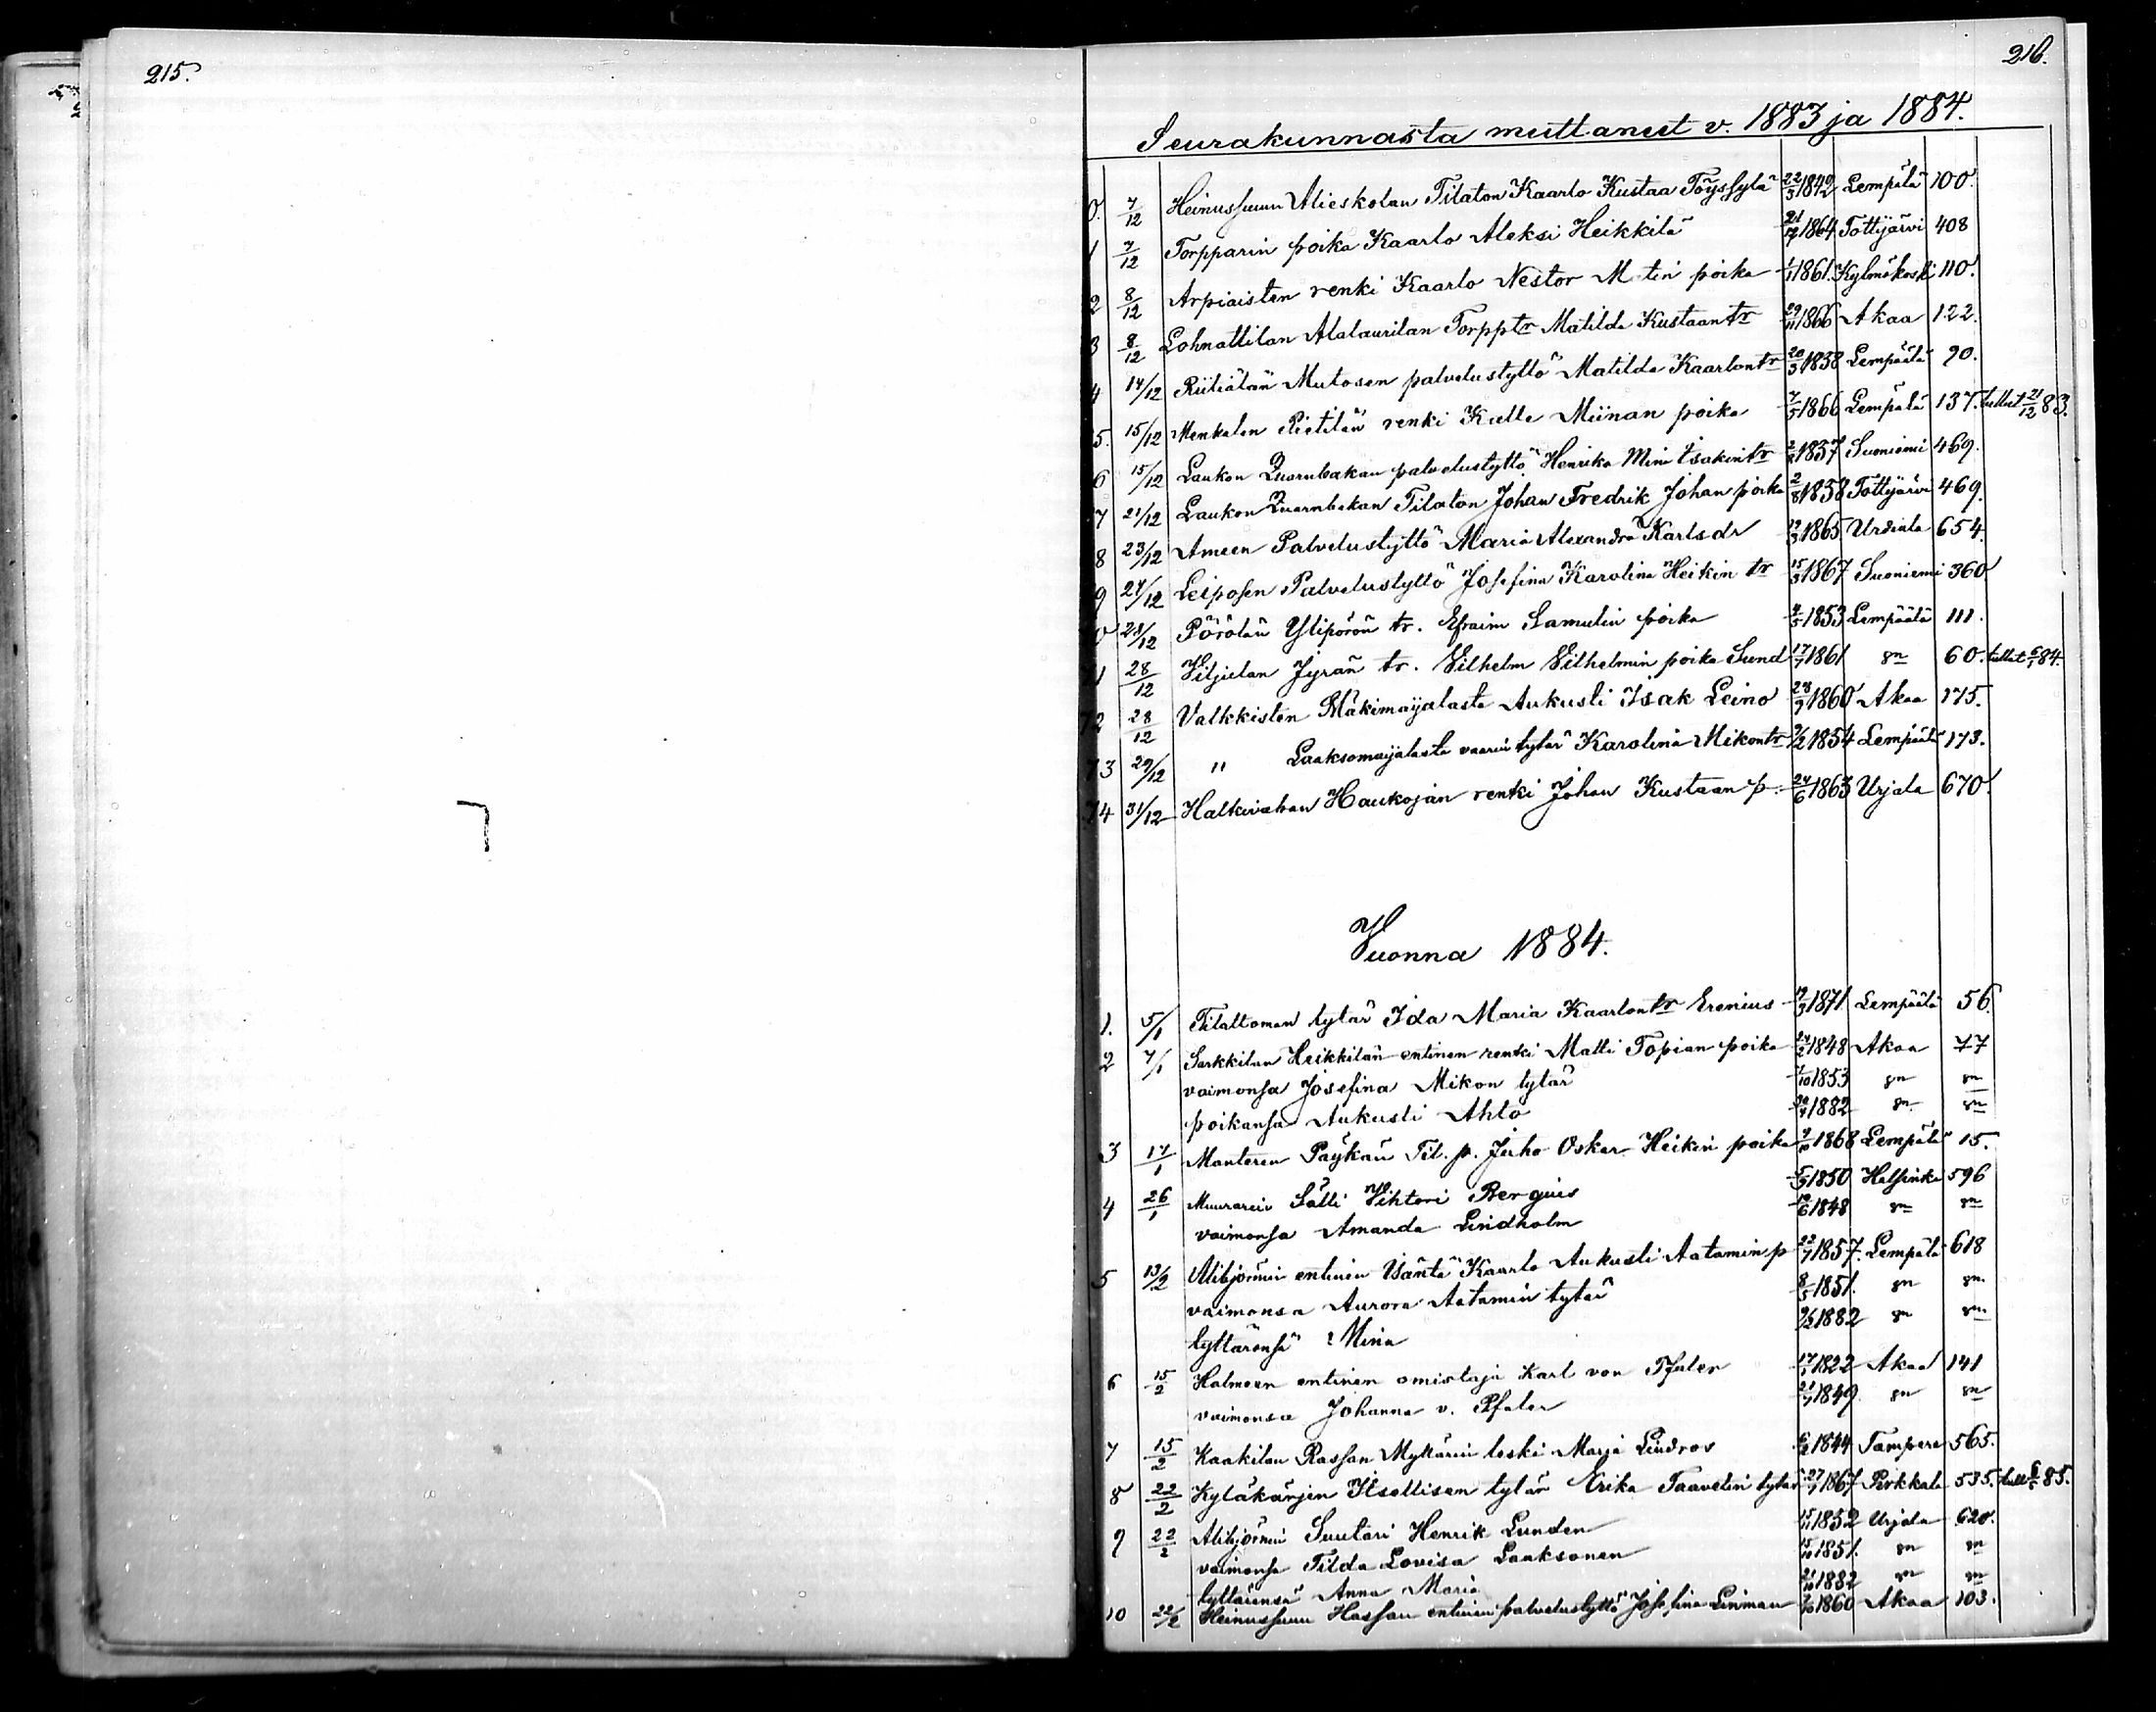 215.
216.
Seurakunnasta muuttanut v. 1883 ja 1884.
0. 7/12 Heinussuun Alieskolan Tilaton Kaarlo Kustaa Töyssylä 22/3 1842 Lempälä 100.
1 7/12 Torpparin poika Kaarlo Aleksi Heikkilä 1864 Tottijärvi 408
2 8/12 Arpiaisten renki Kaarlo Nestor M tin poika 1861. Kylmäkoski 110.
3 8/12 Lohnattilan Alalaurilan Torpp tr Matilda Kustaan tr 29/11 1866 Akaa 122.
4 14/12 Mutosen palvelustyttö Matilda Kaarlon tr 20/3 1838 Lempäälä 90.
5. 15/12 Menkalan Pietilän renki Kalle Miinan poika 7/5 1866 Lempälä 137. tullut 21/12 83.
6 15/12 Laukon Quarnbakan palvelustyttö Henrika Mina Isakin tr 1837 Suoniemi 469.
7 21/12 Laukon Quarnbakan Tilaton Johan Fredrik Johan poika 2/8 1858 Tottijärvi 469.
8 23/12 Ameen Palvelustyttö Maria Alexandra Karlsdr 12/3 1865 Urdiala 654.
9 27/12 Leiposen Palvelustyttö Josefina Karolina Heikin tr 15/3 1867 Suoniemi 360
0 28/12 Pörölän Ylipörön tr. Efraim Samulin poika 1853 Lempäälä 111.
1 28/12 Viljulan Jyrän tr. Vilhelm Vilhelmin poika Sund 17/7 1861 sn 60. tullut 6/1 84.
12 28/12 Valkkisten Mäkimaijalasta Aukusti Isak Leino 28/9 1860 Akaa 175.
13 29/12 " Laaksomaijalasta vaarin tytär Karolina Mikon tr 1854 Lempäälä 173.
14 31/12 Halkivahan Haukojan renki Johan Kustaan p. 24/6 1863 Urjala 670.
Vuonna 1884.
1. 5/1 Tilattoman tytär Ida Maria Kaarlon tr Erenius 19/3 1871 Lempäälä 56.
2 7/1 Sarkkilan Heikkilän entinen renki Matti Topian poika 24/2 1848 Akaa 77
vaimonsa Josefina Mikon tytär 1853 sn sn
poikansa Aukusti Ahto 1882 sn sn
3 17/1 Monteren Päykän Til. p. Juho Oskar Heikin poika 1868 Lempälä 15.
4 26/1 Muurarin Sälli Vihtori Bergius 1850 Helsinki 596
vaimonsa Amanda Lindholm 19/6 1848 sn sn
5 13/2 Alibjörnin entinen Isäntä Kaarlo Aukusti Aatamin p 22/7 1857. Lempälä 618
vaimonsa Aurora Aatamin tytär 1851. sn sn
tyttärensä Mina 1882 sn sn
6 15/2 Halmeen entinen omistaja Karl von Pfaler 1822 Akaa 141
vaimonsa Johanna v. Pfaler 1849 sn sn
7 15/2 Kaakilan Rassan Myllärin leski Maria Lindros 1844 Tampere 565.
8 22/2 Kyläkärjen Itsellisen tytär Erika Taavetin tytär 27/7 1867 Pirkkala 535. tull 85.
9 22/2 Alibjörnin Suutari Henrik Lunden 1852 Urjala 620.
vaimonsa Tilda Lovisa Laaksonen 1851. sn sn
tyttärensä Anna Maria 1882 sn sn
10 22/2 Heinussuun Hassan entinen palvelustyttö Josefina Linman 1860 Akaa 103.